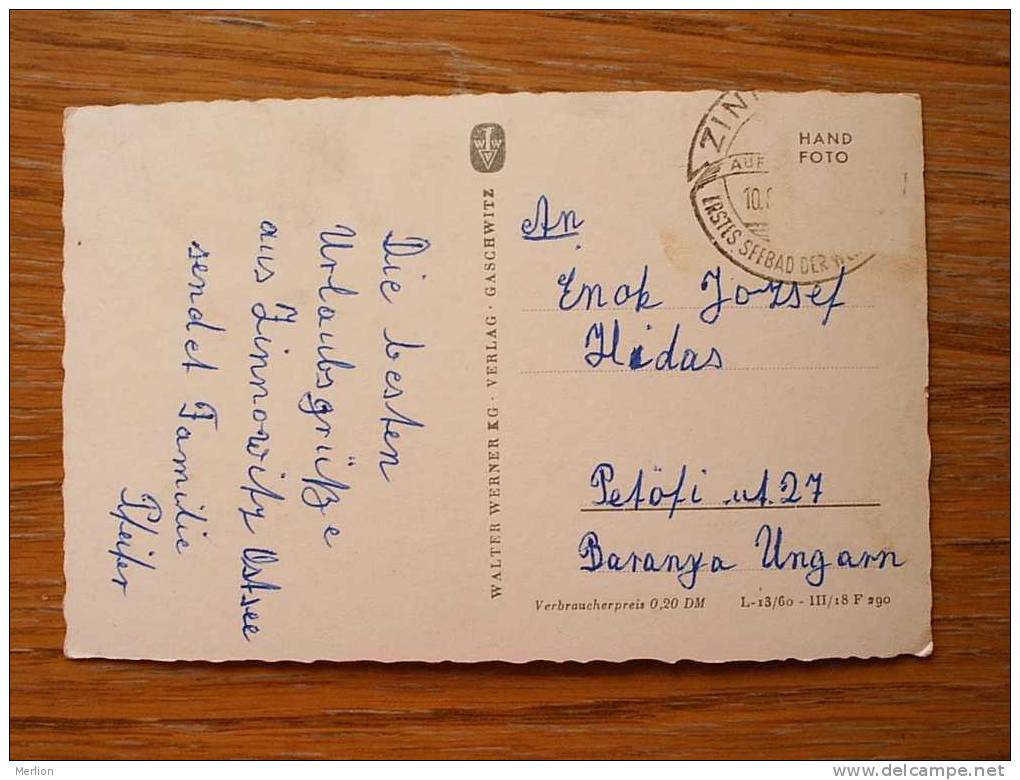 Die besten
Urlaubsgrüße
aus Zinnowitz Ostsee
sendet Familie
Pfeifer
WALTER WERNER KG · VERLAG · GASCHWITZ
HAND
FOTO
ZIN
AUF
10.
ERSTES SEEBAD DER
An
Enok Jozsef
Hidas
Petöfi ut. 27
Baranya Ungarn
Verbraucherpreis 0,20 DM L-13/60 - III/18 F 290
Merlion
www.delcampe.net